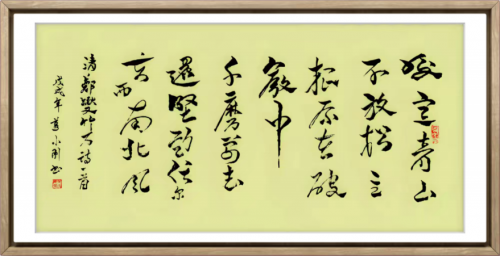 咬定青山
不放松立
根原在破
巖中
千磨萬击
還堅劲任尔
东西南北风
清鄭燮竹石诗一首
戊戌年小刚书